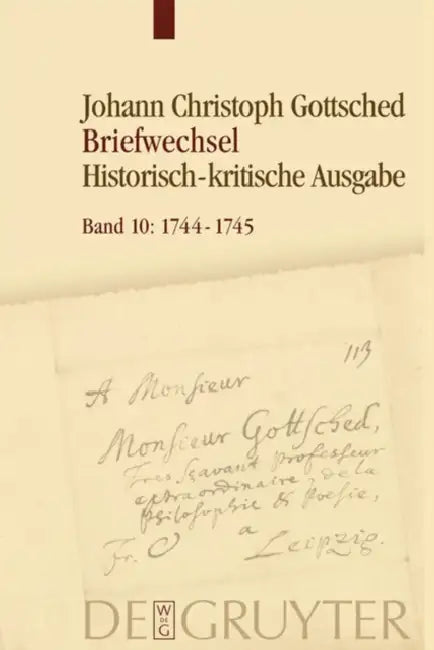 Johann Christoph Gottsched
Briefwechsel
Historisch-kritische Ausgabe
Band 10: 1744-1745
113
A Monsieur
Monsieur Gottsched,
Tres Sçavant Professeur
extraordinaire de la
Philosophie & Poesie,
Fr. a
Leipzig.
DE GRUYTER
W
DE
G